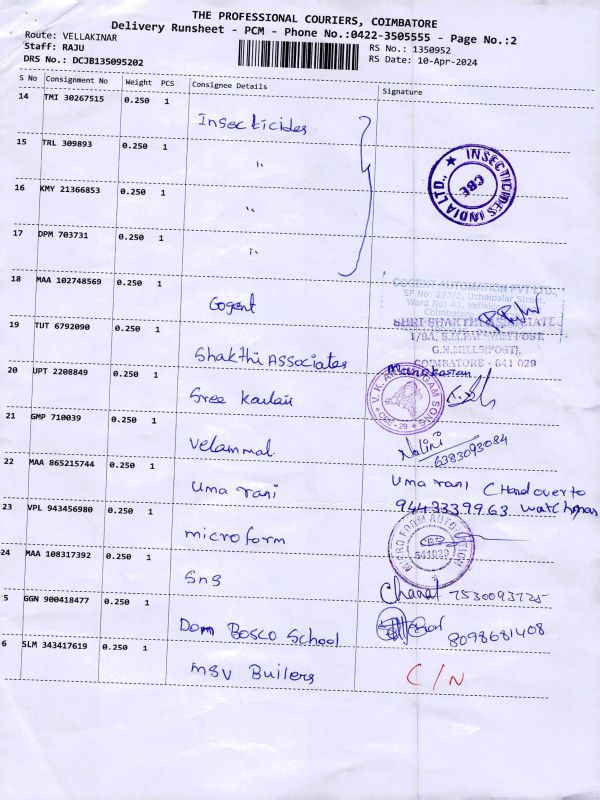 THE PROFESSIONAL COURIERS, COIMBATORE
Delivery Runsheet - PCM - Phone No.:0422-3505555 - Page No.:2
Route: VELLAKINAR
Staff: RAJU
RS No.: 1350952
DRS No.: DCJB135095202
RS Date: 10-Apr-2024
S No Consignment No Weight PCS Consignee Details Signature
14 TMI 30267515 0.250 1 Insecticides
15 TRL 309893 0.250 1 "
INSECTICIDES INDIA LTD., ★ CBE
16 KMY 21366853 0.250 1 "
17 DPM 703731 0.250 1 "
18 MAA 102748569 0.250 1 Cogent
COGENT AUTOMATION PVT LTD.,
SF No: 222/2, Uzhaipalar Street,
Ward No: 43, Vellakinar
Coimbatore
19 TUT 6792090 0.250 1 Shakthi Associates
SHRI SHAKTHI ASSOCIATES
1/9A,
G.N.MILLS(POST),
COIMBATORE - 641 029
20 UPT 2208849 0.250 1 Sree Kailaii
Manokaran
CBE-29
21 GMP 710039 0.250 1 Velammal
Nalini
6383093084
22 MAA 865215744 0.250 1 Uma rani
Uma rani (Hand over to
9443339963 watchman
23 VPL 943456980 0.250 1 microform
MICRO FORM
CBE
641029
24 MAA 108317392 0.250 1 Sns
7530093725
5 GGN 900418477 0.250 1 Dom Bosco School
8098681408
6 SLM 343417619 0.250 1 MSV Builers
C/N